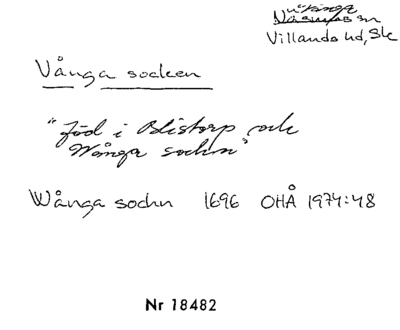 Vånga
Villands hd, Sk
Vånga socken
"född i Blistorp och
Wånga sochn"
Wånga sochn 1696 OHÅ 1974:48
Nr 18482